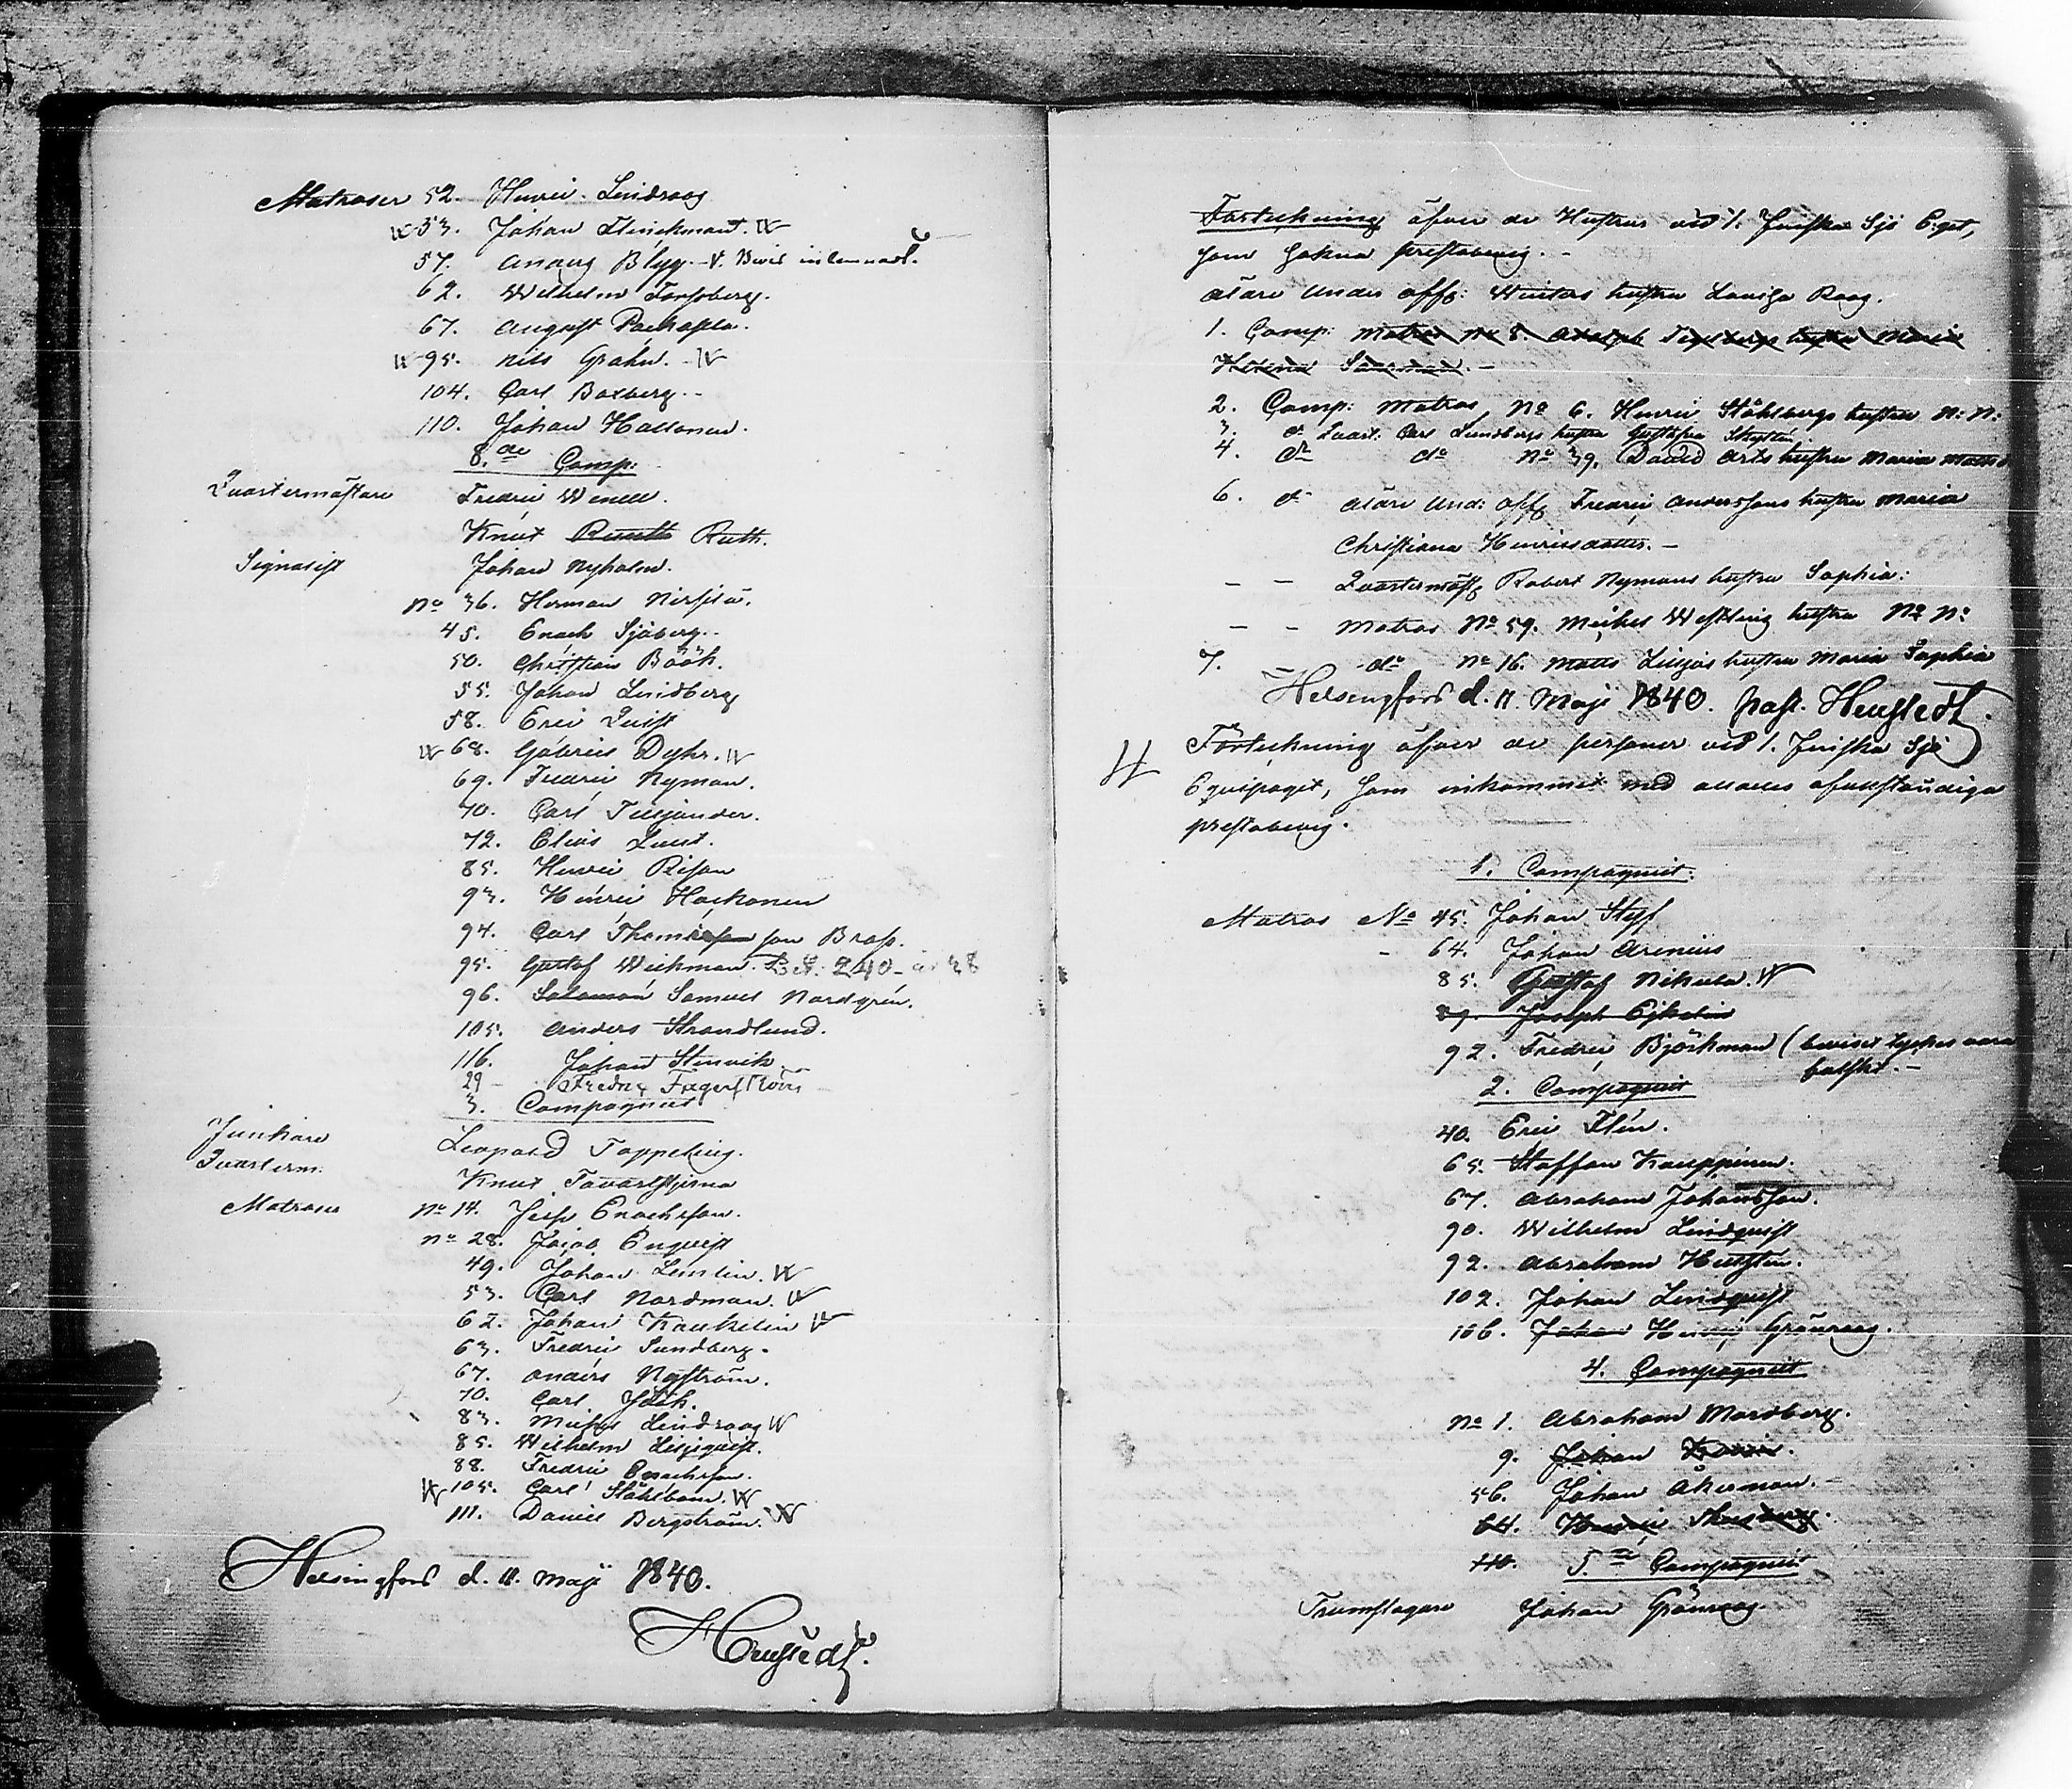 Matroser 52. Henric Lindroos
W 53. Johan Flinckman. W
57. Anders Blyg
62. Wilhelm Forssberg.
67. August
W 95. Nils Grahn. W
104. Carl Boxberg.
110. Johan Hallonen.
8.de Comp:
Quartermästare Fredric Wenell.
Knut Ruuth Ruth.
Signalist Johan Nyholm.
No 36. Herman
45. Enoch Sjöberg.
50. Christian Bööck.
55. Johan Lindberg
58. Eric Quist
W 68. Gabriel Dyhr. W
69. Fredric Nyman.
70. Carl Tilljander.
72. Elias
85. Henric
93. Henric Hackonen
94. Carl son Brass.
95. Gustaf Weckman. 240
96. Salomon Samuel Nordgrén.
105. Anders Strandlund.
116. Johan Stenvik
29 - Fredric Fagerström
3. Compagniet
Junkare Leopold Toppelius.
Quarterm. Knut Tavaststjerna
Matroser No 14. Enochsson.
No 28. Jacob Enqvist
49. Johan Lemlin. W
53. Carl Nordman. W
62. Johan W
63. Fredric Sundberg.
67. Anders Nyström.
70. Carl
83. Michel Lindroos W
85. Wilhelm Liljeqvist.
88. Fredric Enochsson.
W 105. Carl Ståhlbom. W
111. Daniel Bergström. W
Helsingfors d. 11. Maji 1840.
Förteckning öfver de Hustrur vid 1. Finska Sjö Eqet,
som sakna prestabevis. -
Äldre Under Off: Winters hustru Lovisa Roos.
1. Comp: Matros No 8. Adolph hustru Maria
2. Comp: Matros No 6. Henric Ståhlbergs hustru N: N:
3. do Quart: Carl Lundbergs hustru Gustafva
4. do do No 39. David Arts hustru Maria
6. do Äldre Und: Off: Fredric Anderssons hustru Maria
Christiana Henricsdotter. -
- - Quartermäst: Robert Nymans hustru Sophia:
- - Matros No 59. Michel Westling hustru N: N:
7. - do No 16. Matts hustru Maria Sophia
Helsingfors d. 11. Maji 1840. past.
Förteckning öfver de personer vid 1. Finska Sjö
Equipaget, som inkommit med alldeles ofullständiga
prestabevis.
1. Compagniet.
Matros No 45. Johan
- 64. Johan Arenius
85. Gustaf Nikula. W
89. Joseph
92. Fredric Björkman (beviset tyckes vara
falskt. -
2. Compagniet
40. Eric Flén.
65. Staffan Kauppinen.
67. Abraham Johansson.
90. Wilhelm Lindquist
92. Abraham Hultstén.
102. Johan Lindquist
106. Johan Henric Grönroos.
4. Compagniet
No 1. Abraham Mordberg.
9. Johan
56. Johan Åkerman. -
64. Henric
110. 5.te Compagniet
Trumslagare Johan Grönroos.